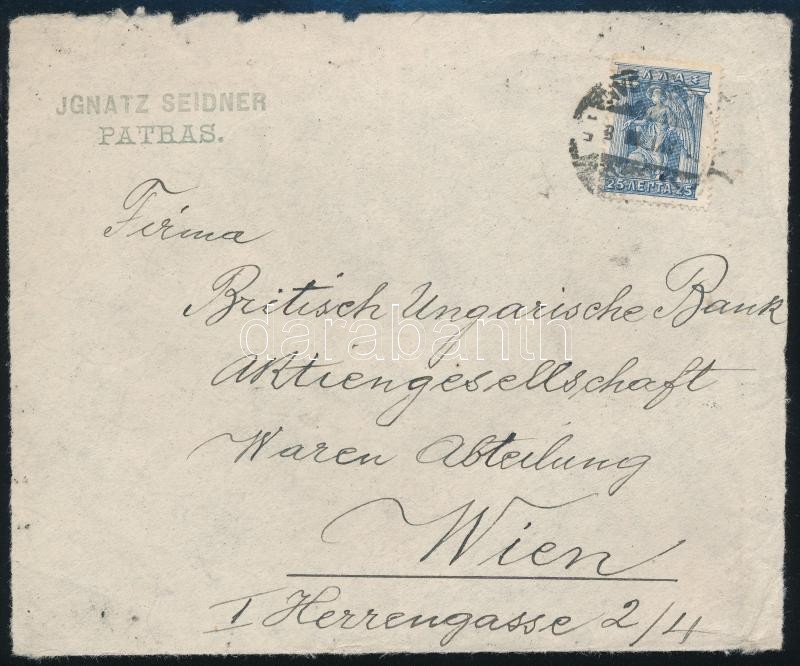 JGNATZ SEIDNER
PATRAS.
ΕΛΛΑΣ
25 ΛΕΠΤΑ 25
Firma
Britisch Ungarische Bank
darabanth
Aktiengesellschaft
Waren Abteilung
Wien
I Herrengasse 2/4